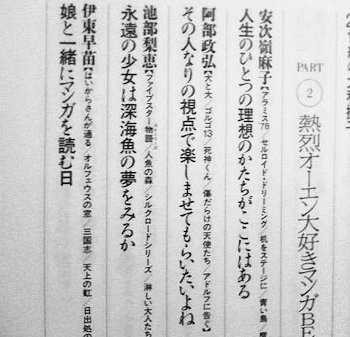 PART
2
熱烈オーエン大好きマンガBE
安次嶺麻子【アラミス'78／セルロイド・ドリーミング／机をステージに／青い鳥／
人生のひとつの理想のかたちがここにはある
阿部政弘【犬と大／ゴルゴ13／死神くん／傷だらけの天使たち／アドルフに告ぐ】
その人なりの視点で楽しませてもらいたいよね
池部梨恵【ファイブスター物語／人魚の森／シルクロードシリーズ／淋しい大人たち
永遠の少女は深海魚の夢をみるか
伊東早苗【はいからさんが通る／オルフェウスの窓／三国志／天上の虹／日出処の
娘と一緒にマンガを読む日